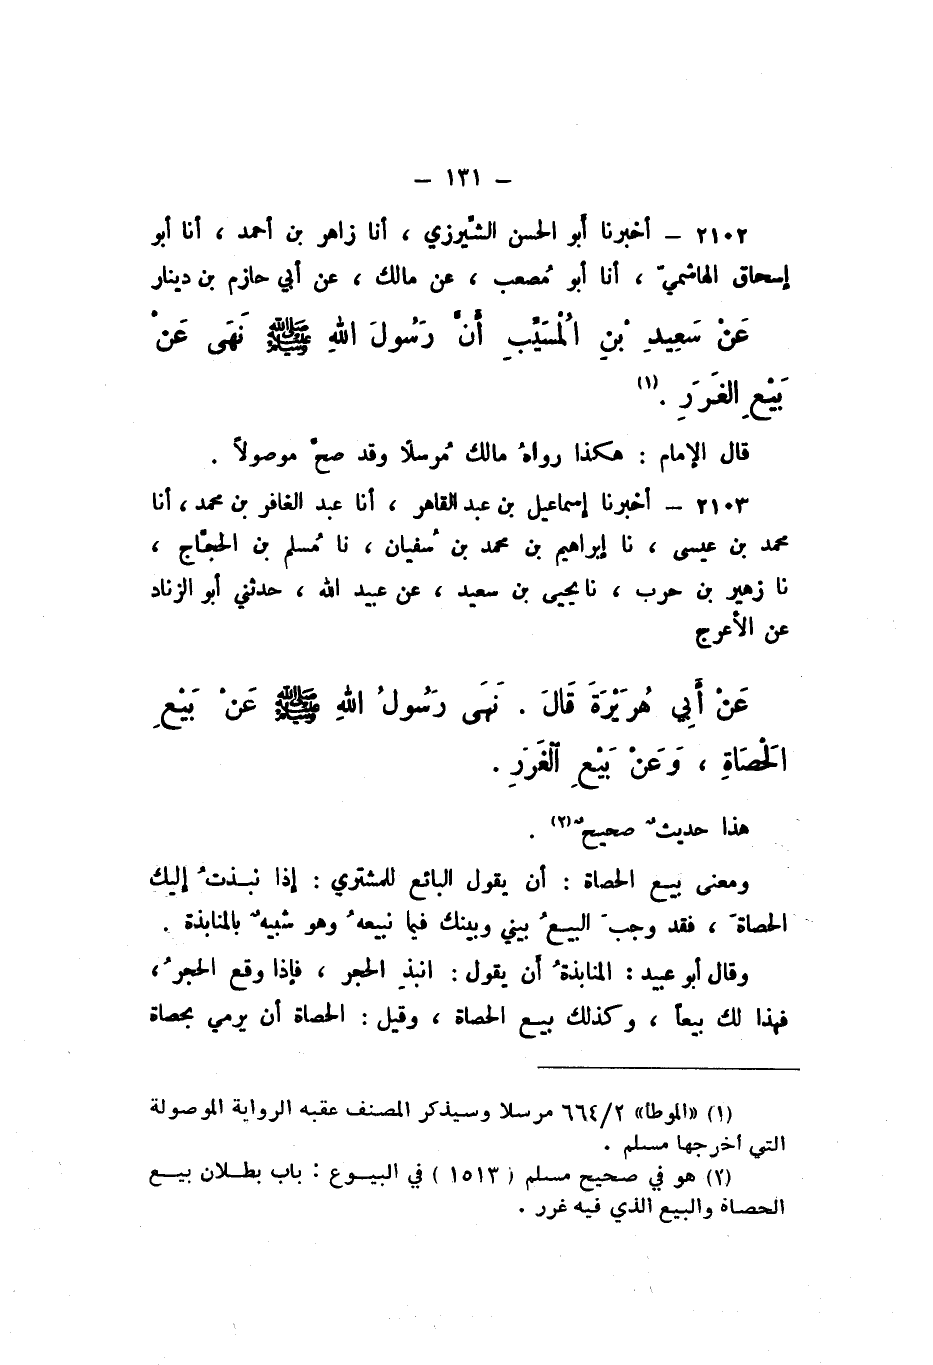 – ١٣١ –
٢١٠٢ – أخبرنا أبو الحسن الشِّيرزي ، أنا زاهر بن أحمد ، أنا أبو
إسحاق الهاشميّ ، أنا أبو مُصعب ، عن مالك ، عن أبي حازم بن دينار
عَنْ سَعِيدِ بْنِ الْمُسَيَّبِ أَنَّ رَسُولَ اللهِ ﷺ نَهَى عَنْ
بَيْعِ الغَرَرِ .(١)
قال الإمام : هكذا رواهُ مالك مُرسلًا وقد صحَّ موصولاً .
٢١٠٣ – أخبرنا إسماعيل بن عبد القاهر ، أنا عبد الغافر بن محمد ، أنا
محمد بن عيسى ، نا إبراهيم بن محمد بن سُفيان ، نا مُسلم بن الحجَّاج ،
نا زهير بن حرب ، نا يحيى بن سعيد ، عن عبيد الله ، حدثني أبو الزناد
عن الأعرج
عَنْ أَبِي هُرَيْرَةَ قَالَ . نَهَى رَسُولُ اللهِ ﷺ عَنْ بَيْعِ
الْحَصَاةِ ، وَعَنْ بَيْعِ الْغَرَرِ .
هذا حديثٌ صحيحٌ(٢) .
ومعنى بيع الحصاة : أن يقول البائع للمشتري : إذا نبذتُ إليك
الحصاةَ ، فقد وجبَ البيعُ بيني وبينك فيما نبيعهُ وهو شبيهٌ بالمنابذة .
وقال أبو عبيد : المنابذةُ أن يقول : انبذِ الحجر ، فإذا وقع الحجرُ ،
فهذا لك بيعاً ، وكذلك بيع الحصاة ، وقيل : الحصاة أن يرمي بحصاة
(١) «الموطأ» ٦٦٤/٢ مرسلا وسيذكر المصنف عقبه الرواية الموصولة
التي أخرجها مسلم .
(٢) هو في صحيح مسلم ( ١٥١٣ ) في البيوع : باب بطلان بيع
الحصاة والبيع الذي فيه غرر .